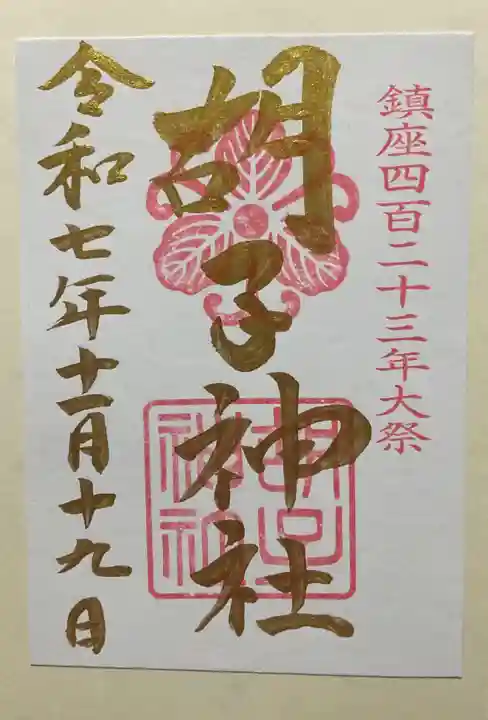 鎮座四百二十三年大祭
胡子神社
令和七年十一月十九日
胡子
神社